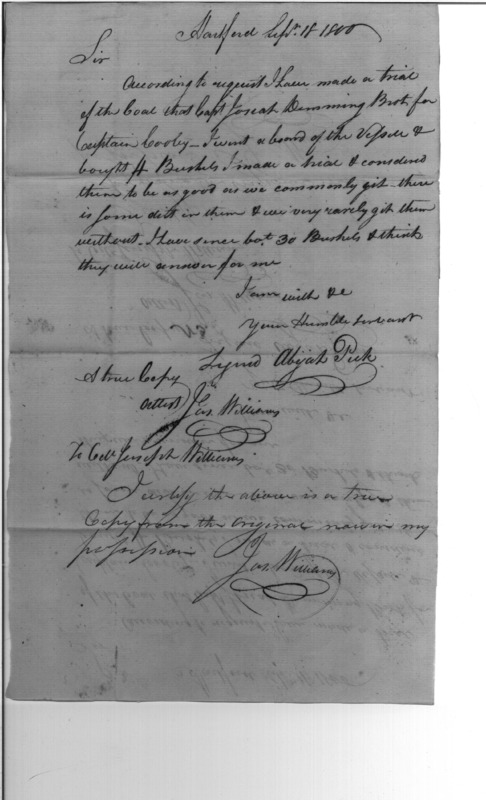 Hartford Sepr. 18 1800
Sir
According to request I have made a trial
of the Coal that Capt Josiah Demming Brot. for
Captain Cooley - I went a board of the Vessele &
bought 4 Bushels I made a trial & considered
them to be as good as we commonly git - there
is some dirt in them & we very rarely git them
without - I have since bot. 30 Bushels & think
they will answer for me
I am with &c
Your Humble Servant
Signd Abijah Peck
A true Copy
attest Jos. Williams
To Coll Joseph Williams
I certify the above is a true
Copy from the original now in my
possession
Jos. Williams